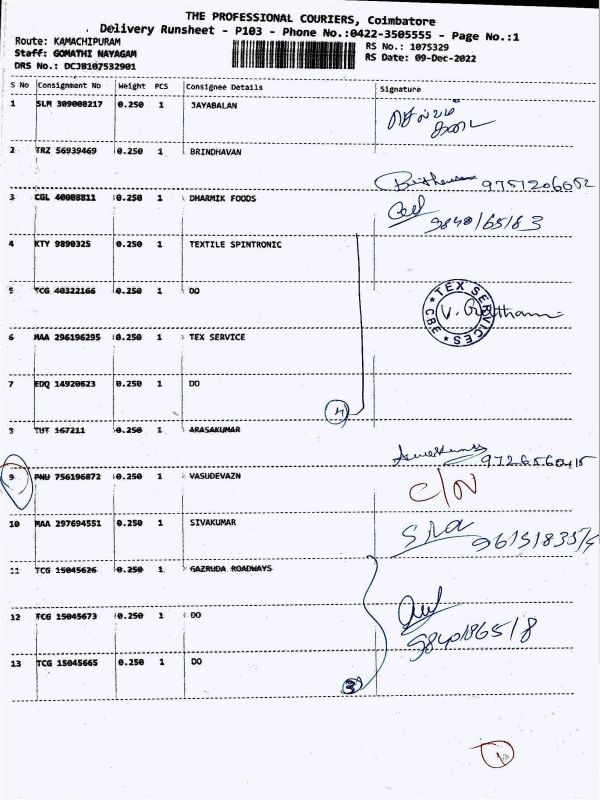 THE PROFESSIONAL COURIERS, Coimbatore
Delivery Runsheet - P103 - Phone No.:0422-3505555 - Page No.:1
Route: KAMACHIPURAM
Staff: GOMATHI NAYAGAM
DRS No.: DCJB107532901
RS No.: 1075329
RS Date: 09-Dec-2022
S No Consignment No Weight PCS Consignee Details Signature
1 SLM 309008217 0.250 1 JAYABALAN
2 TRZ 56939469 0.250 1 BRINDHAVAN
9751206052
3 CGL 40008811 0.250 1 DHARMIK FOODS
9840165183
4 KTY 9890325 0.250 1 TEXTILE SPINTRONIC
5 TCG 40322166 0.250 1 DO
TEX SERVICES
CBE
6 MAA 296196295 0.250 1 TEX SERVICE
7 EDQ 14920623 0.250 1 DO
4
8 TUT 167211 0.250 1 ARASAKUMAR
9 PNU 756196872 0.250 1 VASUDEVAZN
C/N
10 MAA 297694551 0.250 1 SIVAKUMAR
Siva
11 TCG 15045626 0.250 1 GAZRUDA ROADWAYS
12 TCG 15045673 0.250 1 DO
13 TCG 15045665 0.250 1 DO
3
1